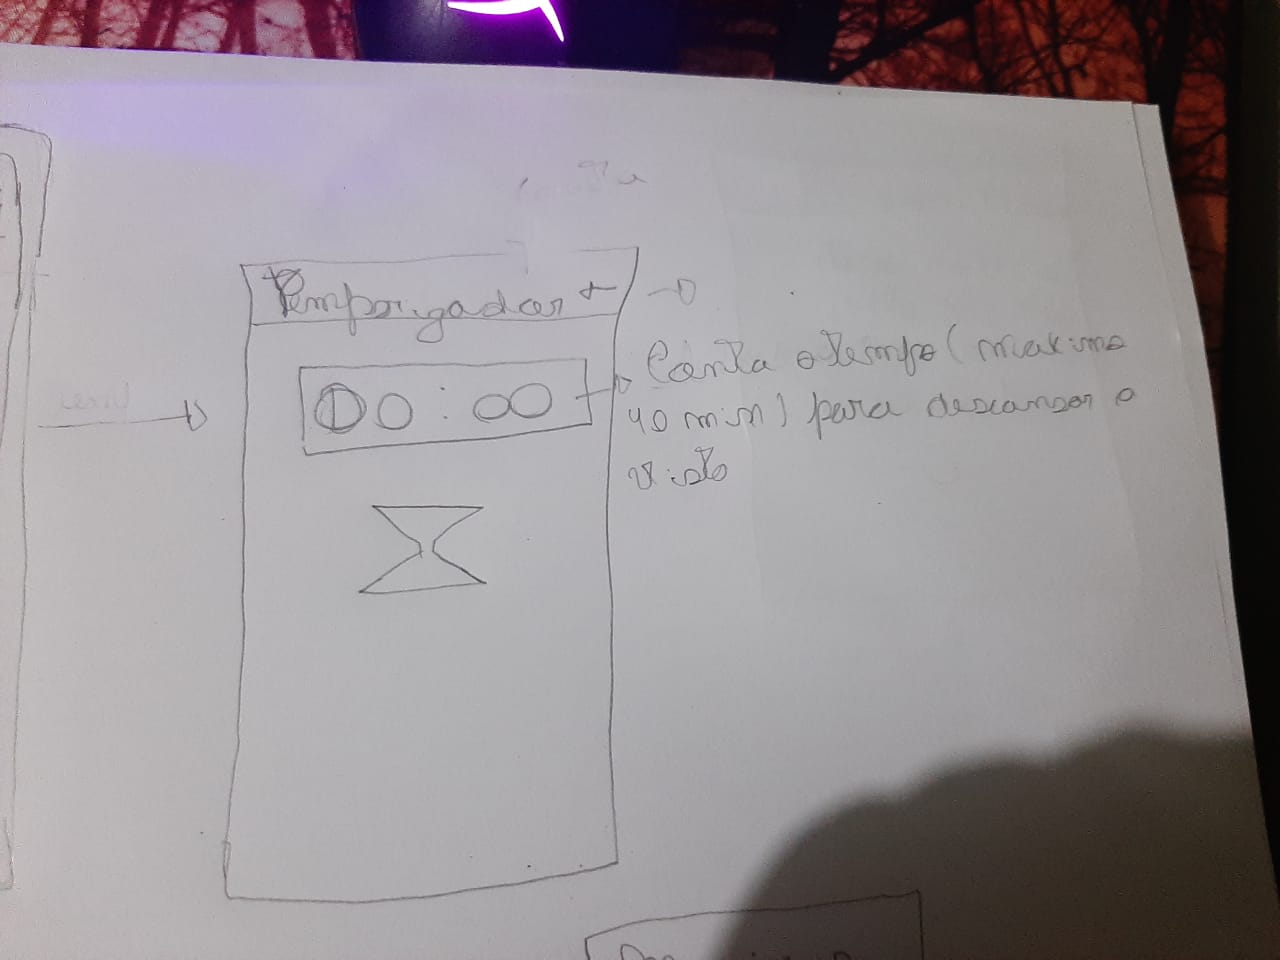 Temporizador +
00:00
Conta o tempo (maximo
40 min) para descansar a
vista